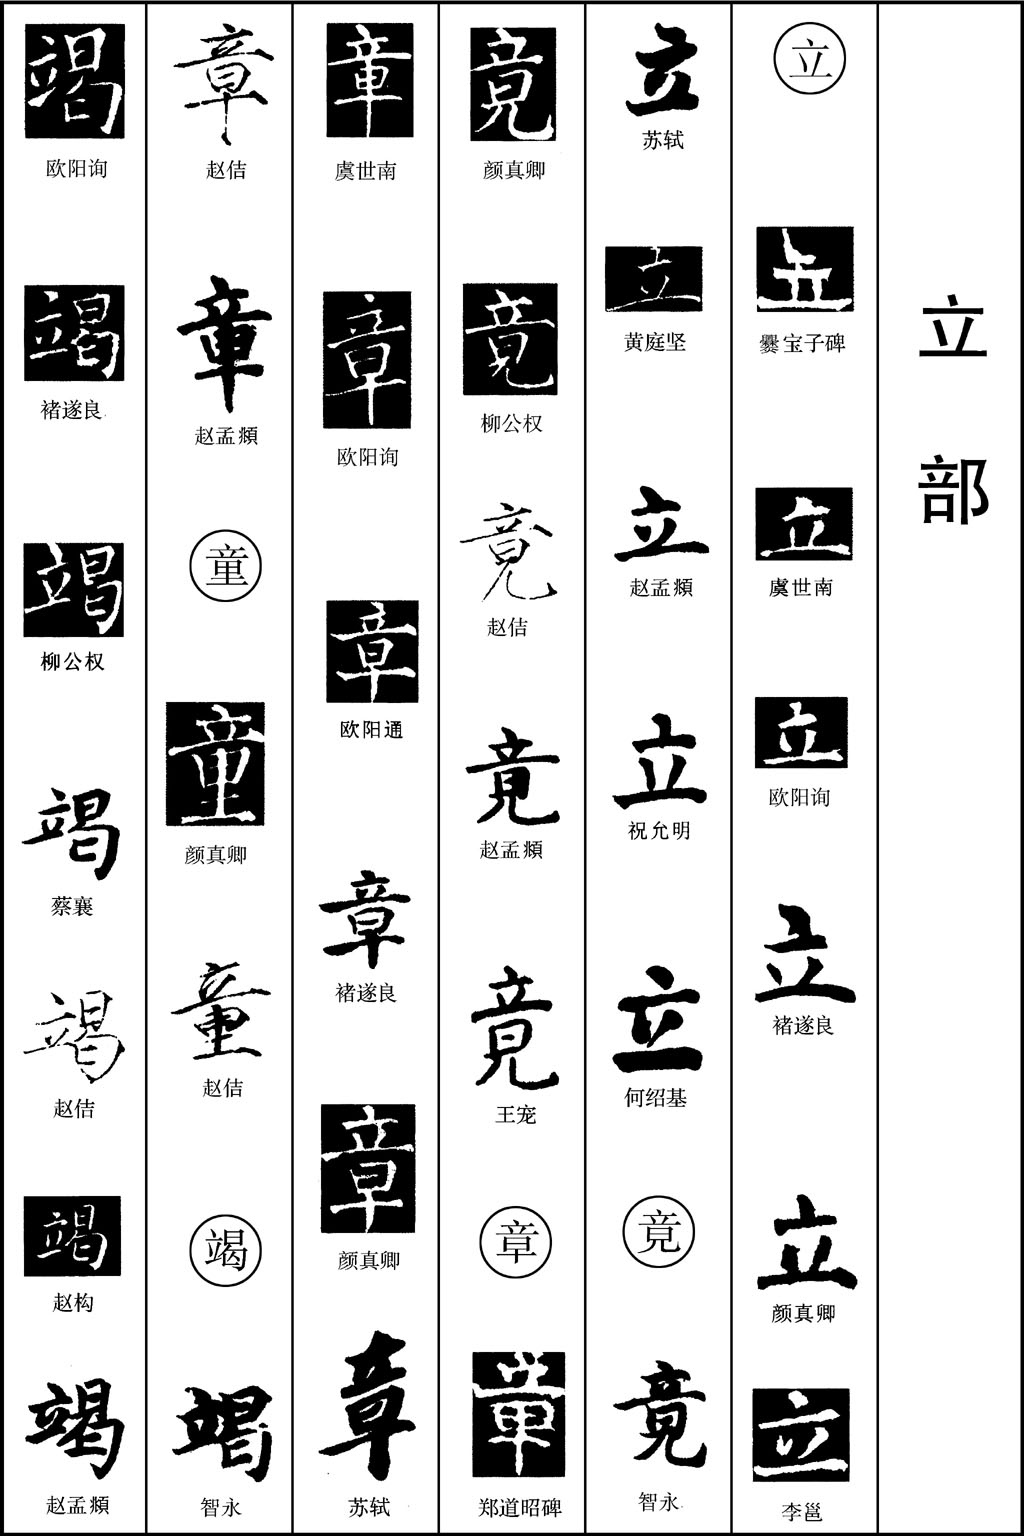 立部
立
立
爨宝子碑
立
虞世南
立
欧阳询
立
褚遂良
立
颜真卿
立
李邕
立
苏轼
立
黄庭坚
立
赵孟頫
立
祝允明
立
何绍基
竟
竟
智永
竟
颜真卿
竟
柳公权
竟
赵佶
竟
赵孟頫
竟
王宠
章
章
郑道昭碑
章
虞世南
章
欧阳询
章
欧阳通
章
褚遂良
章
颜真卿
章
苏轼
章
赵佶
章
赵孟頫
童
童
颜真卿
童
赵佶
竭
竭
智永
竭
欧阳询
竭
褚遂良
竭
柳公权
竭
蔡襄
竭
赵佶
竭
赵构
竭
赵孟頫